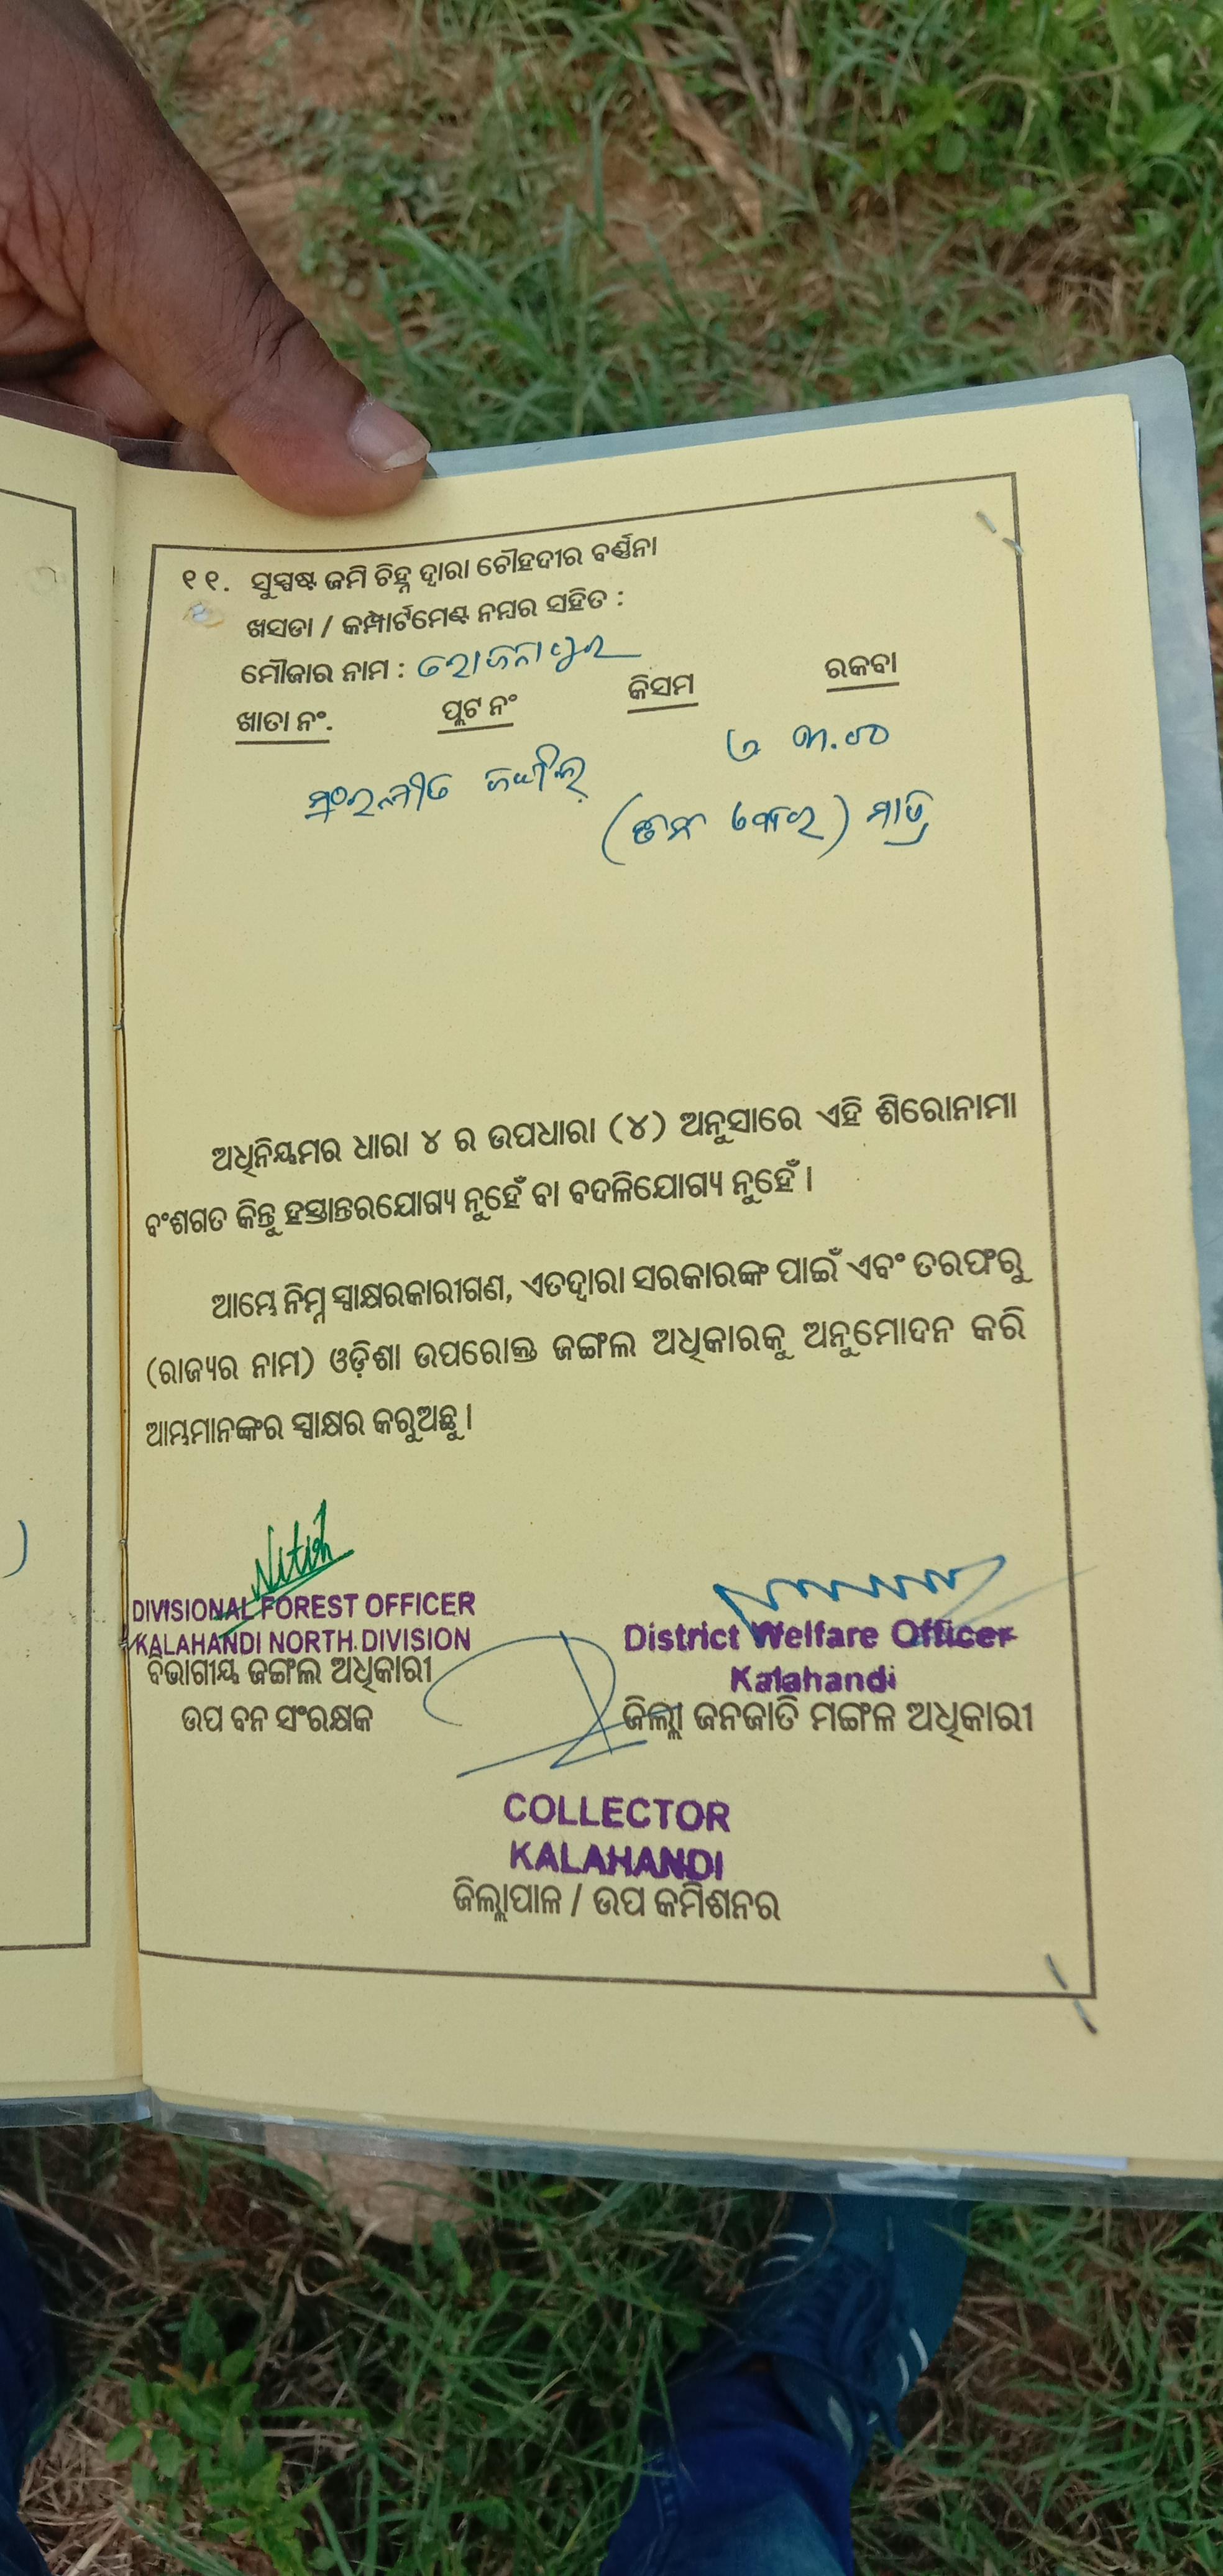 ୧୧. ସୁସ୍ପଷ୍ଟ ଜମି ଚିହ୍ନ ଦ୍ୱାରା ଚୌହଦୀର ବର୍ଣ୍ଣନା
ଖସଡା / କମ୍ପାର୍ଟମେଣ୍ଟ ନମ୍ବର ସହିତ :
ମୌଜାର ନାମ :
ଖାତା ନଂ. ପ୍ଲଟ ନଂ କିସମ ରକବା
ମାତ୍ର
ଅଧିନିୟମର ଧାରା ୪ ର ଉପଧାରା (୪) ଅନୁସାରେ ଏହି ଶିରୋନାମା
ବଂଶଗତ କିନ୍ତୁ ହସ୍ତାନ୍ତରଯୋଗ୍ୟ ନୁହେଁ ବା ବଦଳିଯୋଗ୍ୟ ନୁହେଁ ।
ଆମ୍ଭେ ନିମ୍ନ ସ୍ୱାକ୍ଷରକାରୀଗଣ, ଏତଦ୍ୱାରା ସରକାରଙ୍କ ପାଇଁ ଏବଂ ତରଫରୁ
(ରାଜ୍ୟର ନାମ) ଓଡ଼ିଶା ଉପରୋକ୍ତ ଜଙ୍ଗଲ ଅଧିକାରକୁ ଅନୁମୋଦନ କରି
ଆମ୍ଭମାନଙ୍କର ସ୍ୱାକ୍ଷର କରୁଅଛୁ ।
Nitish
DIVISIONAL FOREST OFFICER
KALAHANDI NORTH DIVISION
ବିଭାଗୀୟ ଜଙ୍ଗଲ ଅଧିକାରୀ
ଉପ ବନ ସଂରକ୍ଷକ
District Welfare Officer
Kalahandi
ଜିଲ୍ଲା ଜନଜାତି ମଙ୍ଗଳ ଅଧିକାରୀ
COLLECTOR
KALAHANDI
ଜିଲ୍ଲାପାଳ / ଉପ କମିଶନର